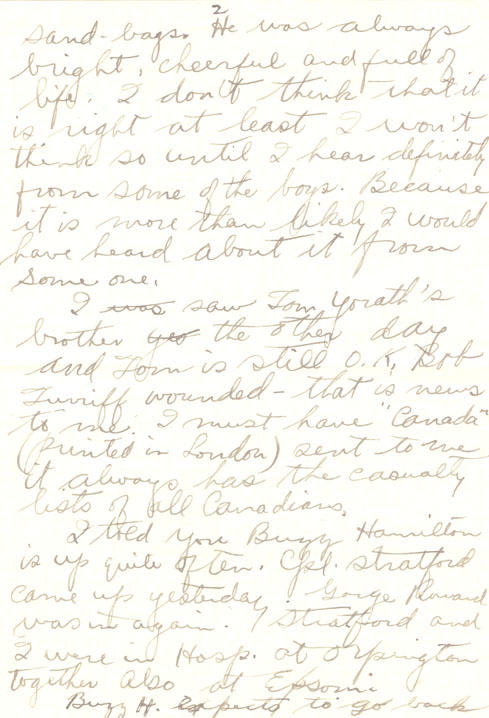 2
sand-bags. He was always
bright, cheerful and full of
life. I don't think that it
is right at least I won't
think so until I hear definitely
from some of the boys. Because
it is more than likely I would
have heard about it from
some one.
I was saw Tom Yorath's
brother yes the other day
and Tom is still O.K. Bob
Turriff wounded - that is news
to me. I must have "Canada"
(printed in London) sent to me
it always has the casualty
lists of all Canadians.
I told you Buzz Hamilton
is up quite often. Cpl. Stratford
came up yesterday. Gorge
was in again. Stratford and
I were in Hosp. at Orpington
together also at Epsom.
Buzz H. expects to go back